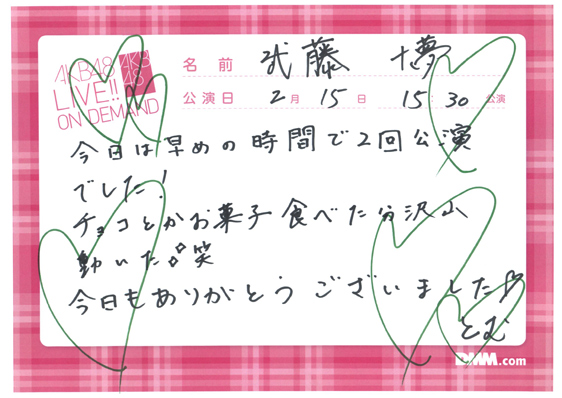 AKB48
LIVE!!
ON DEMAND
AKB
48
名前 武藤 十夢
公演日 2月 15日 15:30 公演
今日は早めの時間で2回公演
でした!
チョコとかお菓子食べた分沢山
動いた笑
今日もありがとうございました
とむ
DMM.com